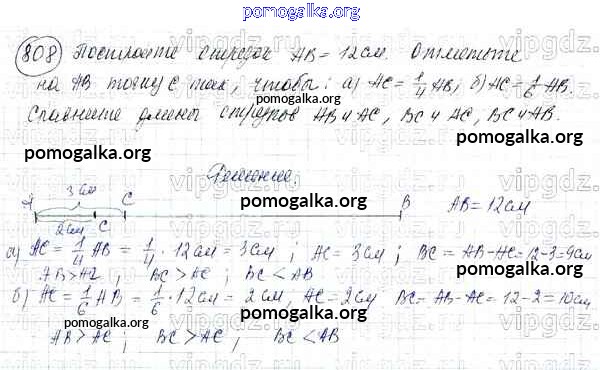 pomogalka.org
808 Постройте отрезок AB = 12 см. Отметьте
на AB точку C так, чтобы: а) AC = 1/4 AB, б) AC = 1/6 AB.
Сравните длины отрезков AB и AC, BC и AC, BC и AB.
pomogalka.org
Решение.
pomogalka.org
3 см
A C B AB = 12 см
2 см C
pomogalka.org
а) AC = 1/4 AB = 1/4 · 12 см = 3 см ; AC = 3 см ; BC = AB - AC = 12 - 3 = 9 см
AB > AC ; BC > AC ; BC < AB
pomogalka.org
б) AC = 1/6 AB = 1/6 · 12 см = 2 см, AC = 2 см BC = AB - AC = 12 - 2 = 10 см
pomogalka.org
AB > AC ; BC > AC ; BC < AB
pomogalka.org